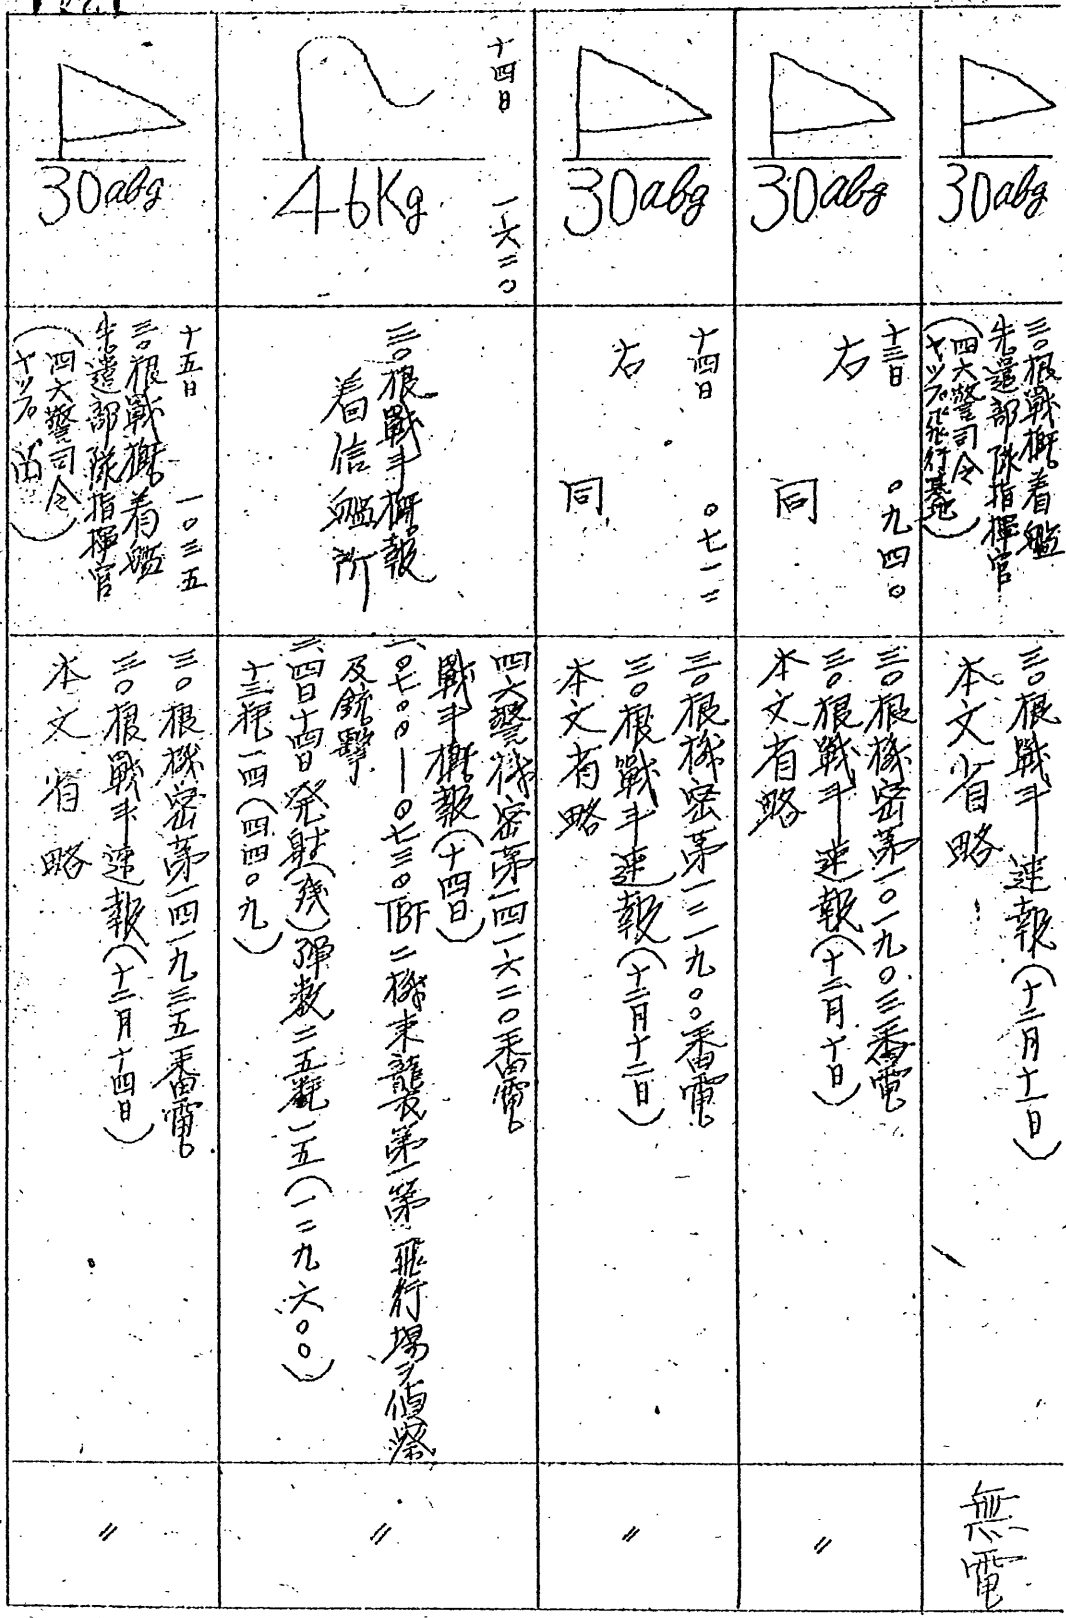 30abg
三〇根戦概着艦
先遣部隊指揮官
(四六警司令
ヤップ飛行基地)
三〇根戦斗速報(十二月十一日)
本文省略
無電
30abg
十三日 〇九四〇
右 同
三〇根機密第一〇一九〇三番電
三〇根戦斗速報(十二月十日)
本文省略
〃
30abg
十四日 〇七一二
右 同
三〇根機密第一二一九〇〇番電
三〇根戦斗速報(十二月十二日)
本文省略
〃
十四日 一六二〇
46Kg
三〇根戦斗概報
着信艦所
四六警機密第一四一六二〇番電
戦斗概報(十四日)
一、〇七〇〇—〇七三〇TBF二機来襲第一第二飛行場ヲ偵察
及銃撃
二、四日十四日発射(残)弾数二五粍一五(一二九六〇〇)
十三粍一四(四四〇九)
〃
30abg
十五日 一〇三五
三〇根戦概着艦
先遣部隊指揮官
(四六警司令
ヤップ)
三〇根機密第一四一九三五番電
三〇根戦斗速報(十二月十四日)
本文省略
〃